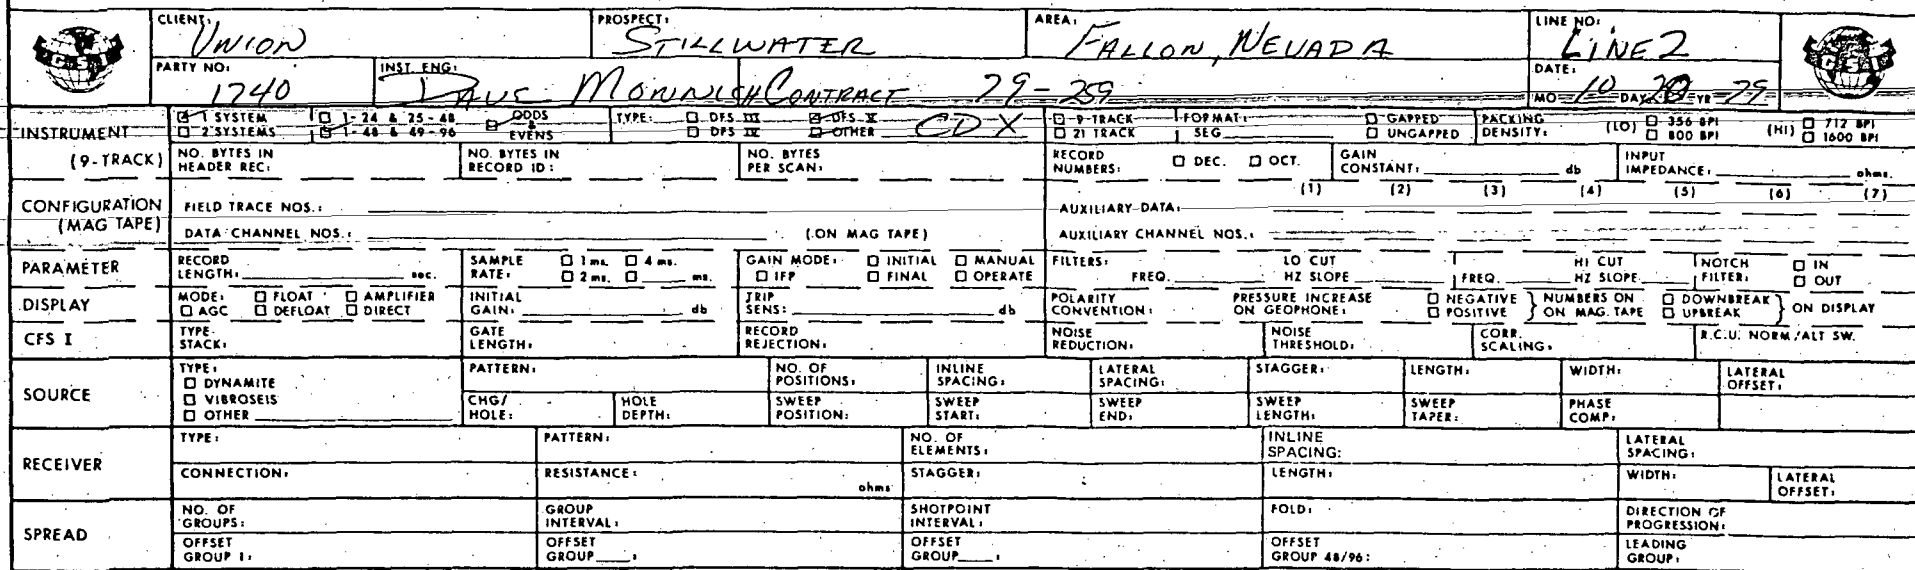 CLIENT: UNION PROSPECT: STILLWATER AREA: FALLON, NEVADA LINE NO: LINE 2
GSI GSI
PARTY NO: 1740 INST. ENG: DAVE MONNICH CONTRACT 79-259 DATE: MO 10 DAY YR 79
INSTRUMENT 1 SYSTEM 1-24 & 25-48 ODDS & EVENS TYPE: DFS III DFS V 9-TRACK FORMAT: GAPPED PACKING DENSITY: (LO) 356 BPI (HI) 712 BPI
2 SYSTEMS 1-48 & 49-96 DFS IV OTHER CDX 21 TRACK SEG UNGAPPED 800 BPI 1600 BPI
(9-TRACK) NO. BYTES IN HEADER REC: NO. BYTES IN RECORD ID: NO. BYTES PER SCAN: RECORD NUMBERS: DEC. OCT. GAIN CONSTANT: db INPUT IMPEDANCE: ohms.
(1) (2) (3) (4) (5) (6) (7)
CONFIGURATION (MAG TAPE) FIELD TRACE NOS.: AUXILIARY DATA:
DATA CHANNEL NOS.: (ON MAG TAPE) AUXILIARY CHANNEL NOS.:
PARAMETER RECORD LENGTH: sec. SAMPLE RATE: 1 ms. 4 ms. 2 ms. ms. GAIN MODE: INITIAL MANUAL IFP FINAL OPERATE FILTERS: FREQ. LO CUT HZ SLOPE FREQ. HI CUT HZ SLOPE NOTCH FILTER: IN OUT
DISPLAY MODE: FLOAT AMPLIFIER AGC DEFLOAT DIRECT INITIAL GAIN: db TRIP SENS: db POLARITY CONVENTION: PRESSURE INCREASE ON GEOPHONE: NEGATIVE POSITIVE } NUMBERS ON ON MAG. TAPE DOWNBREAK UPBREAK } ON DISPLAY
CFS I TYPE STACK: GATE LENGTH: RECORD REJECTION: NOISE REDUCTION: NOISE THRESHOLD: CORR. SCALING: R.C.U. NORM/ALT SW.
SOURCE TYPE: DYNAMITE VIBROSEIS OTHER PATTERN: NO. OF POSITIONS: INLINE SPACING: LATERAL SPACING: STAGGER: LENGTH: WIDTH: LATERAL OFFSET:
CHG/HOLE: HOLE DEPTH: SWEEP POSITION: SWEEP START: SWEEP END: SWEEP LENGTH: SWEEP TAPER: PHASE COMP:
RECEIVER TYPE: PATTERN: NO. OF ELEMENTS: INLINE SPACING: LATERAL SPACING:
CONNECTION: RESISTANCE: ohms STAGGER: LENGTH: WIDTH: LATERAL OFFSET:
SPREAD NO. OF GROUPS: GROUP INTERVAL: SHOTPOINT INTERVAL: FOLD: DIRECTION OF PROGRESSION:
OFFSET GROUP 1: OFFSET GROUP : OFFSET GROUP : OFFSET GROUP 48/96: LEADING GROUP: